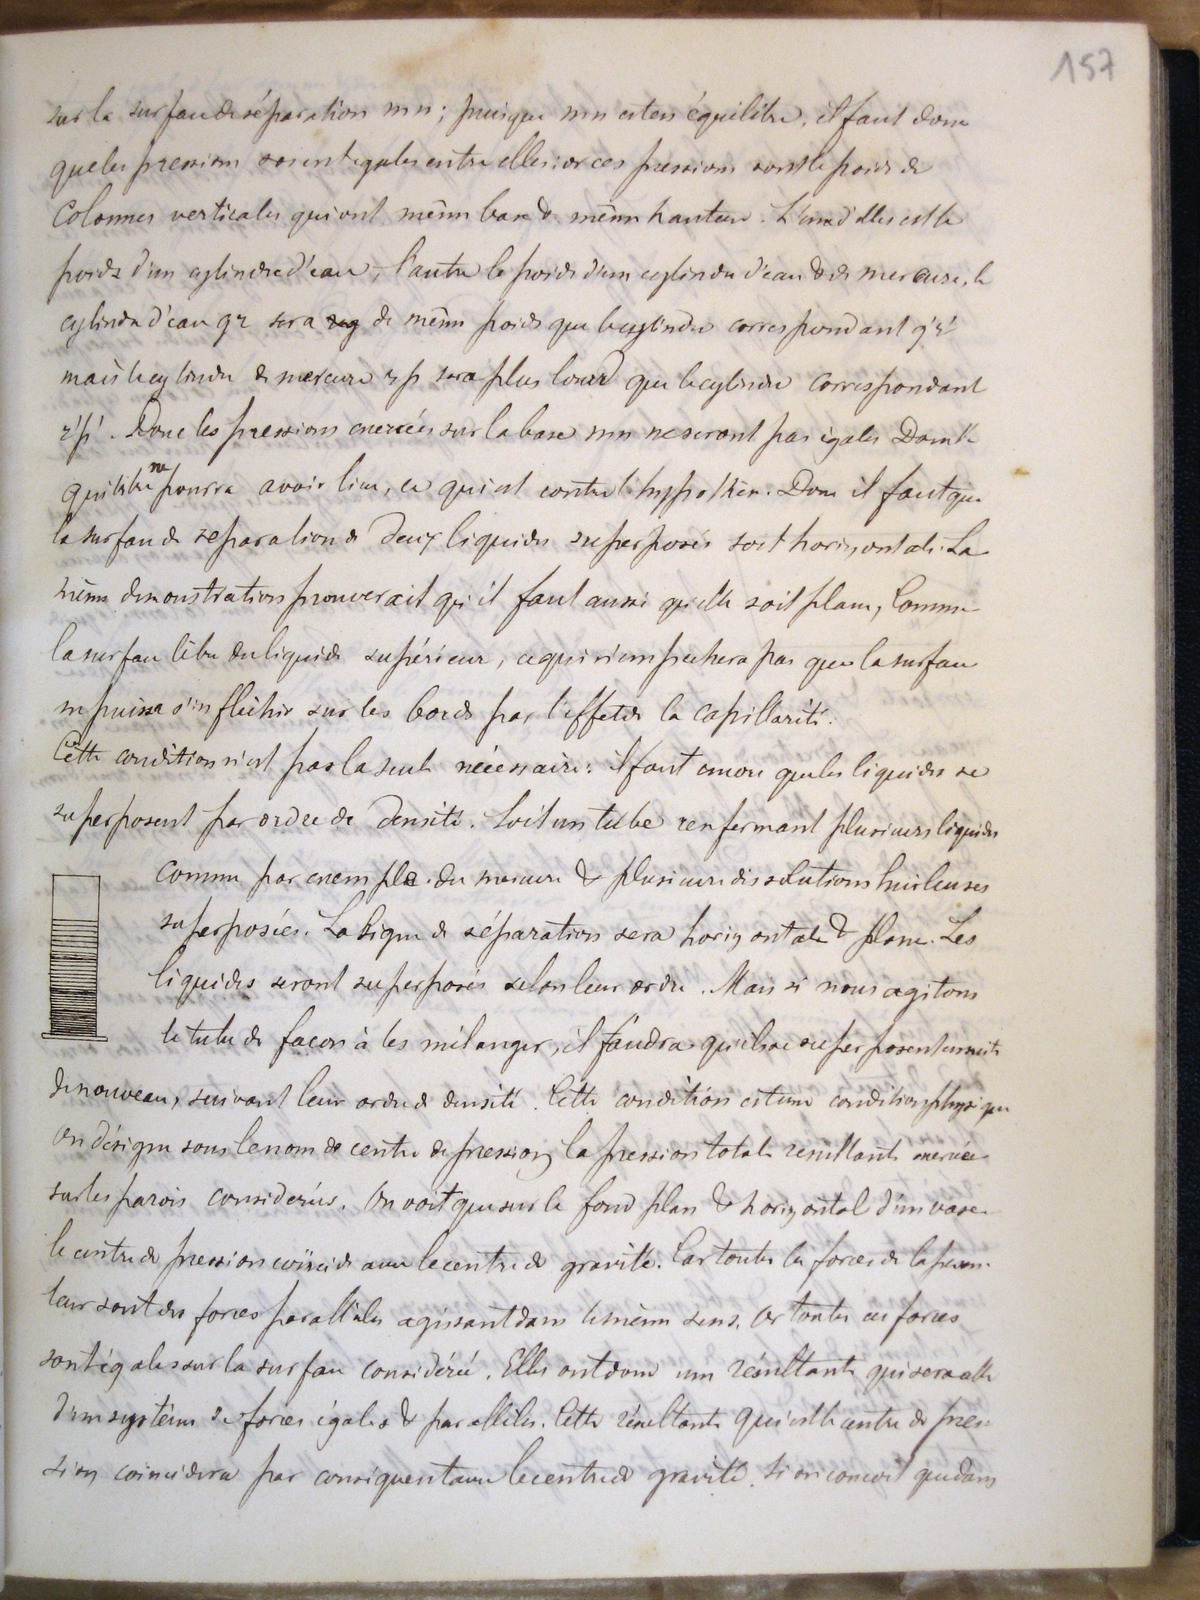 157
sur la surface de séparation mn ; puisque mn est en équilibre, il faut donc
que les pressions soient égales entre elles : or ces pressions sont le poids de
Colonnes verticales qui ont même base & même hauteur. L'une d'elles est le
poids d'un cylindre d'eau, l'autre le poids d'un cylindre d'eau & de mercure, le
cylindre d'eau qr sera de même poids que le cylindre correspondant q'r'
mais le cylindre de mercure rp sera plus lourd que le cylindre correspondant
r'p'. Donc les pressions exercées sur la base mn ne seront pas égales Donc l'é
quilibre ne pourra avoir lieu, ce qui est contre l'hypothèse. Donc il faut que
la surface de séparation de deux liquides superposés soit horizontale. La
même démonstration prouverait qu'il faut aussi qu'elle soit plane, Comme
la surface libre du liquide supérieur, ce qui n'empêchera pas que la surface
ne puisse s'infléchir sur les bords par l'effet de la capillarité.
Cette condition n'est pas la seule nécessaire : il faut encore que les liquides se
superposent par ordre de densité. Soit un tube renfermant plusieurs liquides
comme par exemple du mercure & plusieurs dissolutions huileuses
superposées. La ligne de séparation sera horizontale & plane. Les
liquides seront superposés selon leur ordre. Mais si nous agitons
le tube de façon à les mélanger, il faudra qu'ils se superposent ensuite
de nouveau, suivant leur ordre de densité. Cette condition est une condition physique
On désigne sous le nom de centre de pression, la pression totale résultante exercée
sur les parois considérées. On voit que sur le fond plan & horizontal d'un vase
le centre de pression coïncide avec le centre de gravité. Car toutes les forces de la pesan-
teur sont des forces parallèles agissant dans le même sens. Or toutes ces forces
sont égales sur la surface considérée. Elles ont donc une résultante qui sera celle
d'un système de forces égales & parallèles. Cette résultante qui est le centre de pres-
sion, coincidera par conséquent avec le centre de gravité. Si on conçoit que dans